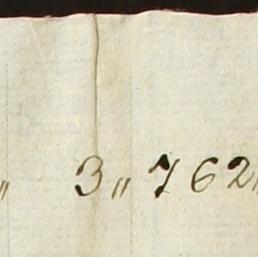 „ 3 „ 762 „